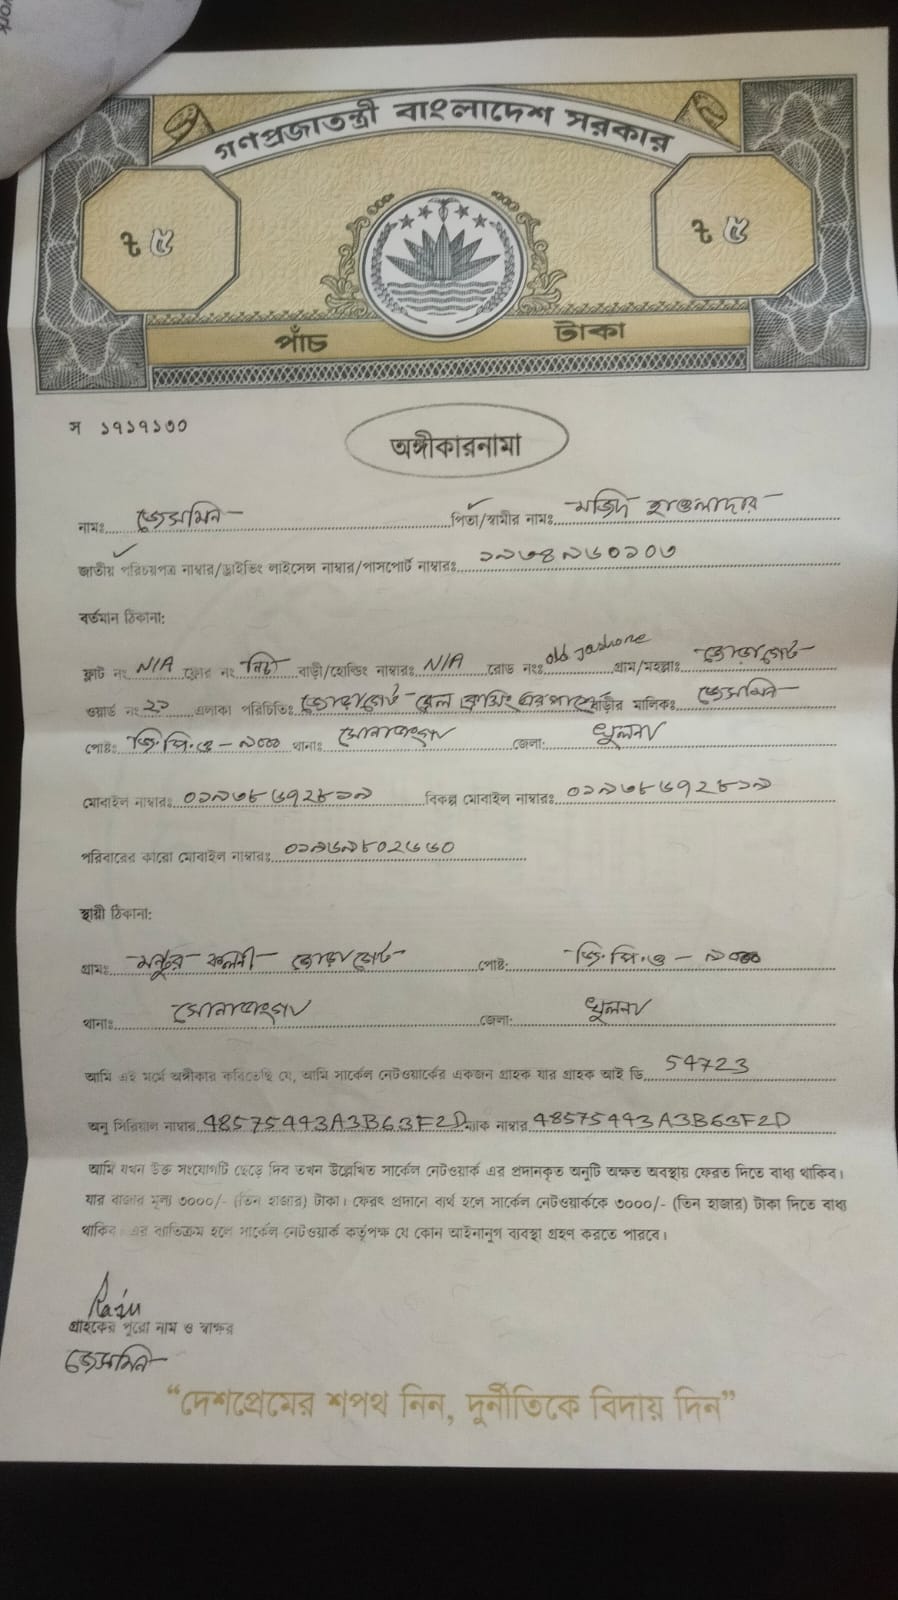 গণপ্রজাতন্ত্রী বাংলাদেশ সরকার
৳ ৫ ৳ ৫
পাঁচ টাকা
স ১৭১৭১৩০
অঙ্গীকারনামা
নামঃ জেসমিন পিতা/স্বামীর নামঃ মজিদ হাওলাদার
জাতীয় পরিচয়পত্র নাম্বার/ড্রাইভিং লাইসেন্স নাম্বার/পাসপোর্ট নাম্বারঃ
বর্তমান ঠিকানা:
ফ্লাট নং N/A ফ্লোর নং নিচ বাড়ী/হোল্ডিং নাম্বারঃ N/A রোড নংঃ old jashore গ্রাম/মহল্লাঃ জোড়াগেট
ওয়ার্ড নং ২১ এলাকা পরিচিতিঃ জোড়াগেট রেল ক্রসিং এর পাশে বাড়ীর মালিকঃ জেসমিন
পোষ্টঃ জি.পি.ও - ৯০০০ থানাঃ সোনাডাংগা জেলা: খুলনা
মোবাইল নাম্বারঃ বিকল্প মোবাইল নাম্বারঃ
পরিবারের কারো মোবাইল নাম্বারঃ
স্থায়ী ঠিকানা:
গ্রামঃ মন্টুর কলনী জোড়াগেট পোষ্ট: জি.পি.ও - ৯০০০
থানাঃ সোনাডাংগা জেলা: খুলনা
আমি এই মর্মে অঙ্গীকার করিতেছি যে, আমি সার্কেল নেটওয়ার্কের একজন গ্রাহক যার গ্রাহক আই ডি 54723
অনু সিরিয়াল নাম্বার 48575443A3B63F2D ম্যাক নাম্বার 48575443A3B63F2D
আমি যখন উক্ত সংযোগটি ছেড়ে দিব তখন উল্লেখিত সার্কেল নেটওয়ার্ক এর প্রদানকৃত অনুটি অক্ষত অবস্থায় ফেরত দিতে বাধ্য থাকিব।
যার বাজার মূল্য ৩০০০/- (তিন হাজার) টাকা। ফেরৎ প্রদানে ব্যর্থ হলে সার্কেল নেটওয়ার্ককে ৩০০০/- (তিন হাজার) টাকা দিতে বাধ্য
থাকিব। এর ব্যতিক্রম হলে সার্কেল নেটওয়ার্ক কর্তৃপক্ষ যে কোন আইনানুগ ব্যবস্থা গ্রহণ করতে পারবে।
Razu
গ্রাহকের পুরো নাম ও স্বাক্ষর
জেসমিন
“দেশপ্রেমের শপথ নিন, দুর্নীতিকে বিদায় দিন”